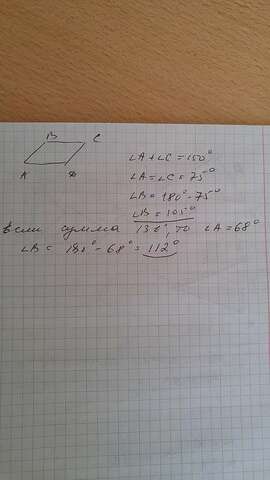 B C
A D
∠A + ∠C = 150°
∠A = ∠C = 75°
∠B = 180° - 75°
∠B = 105°
Если сумма 130°, то ∠A = 68°
∠B = 180° - 68° = 112°